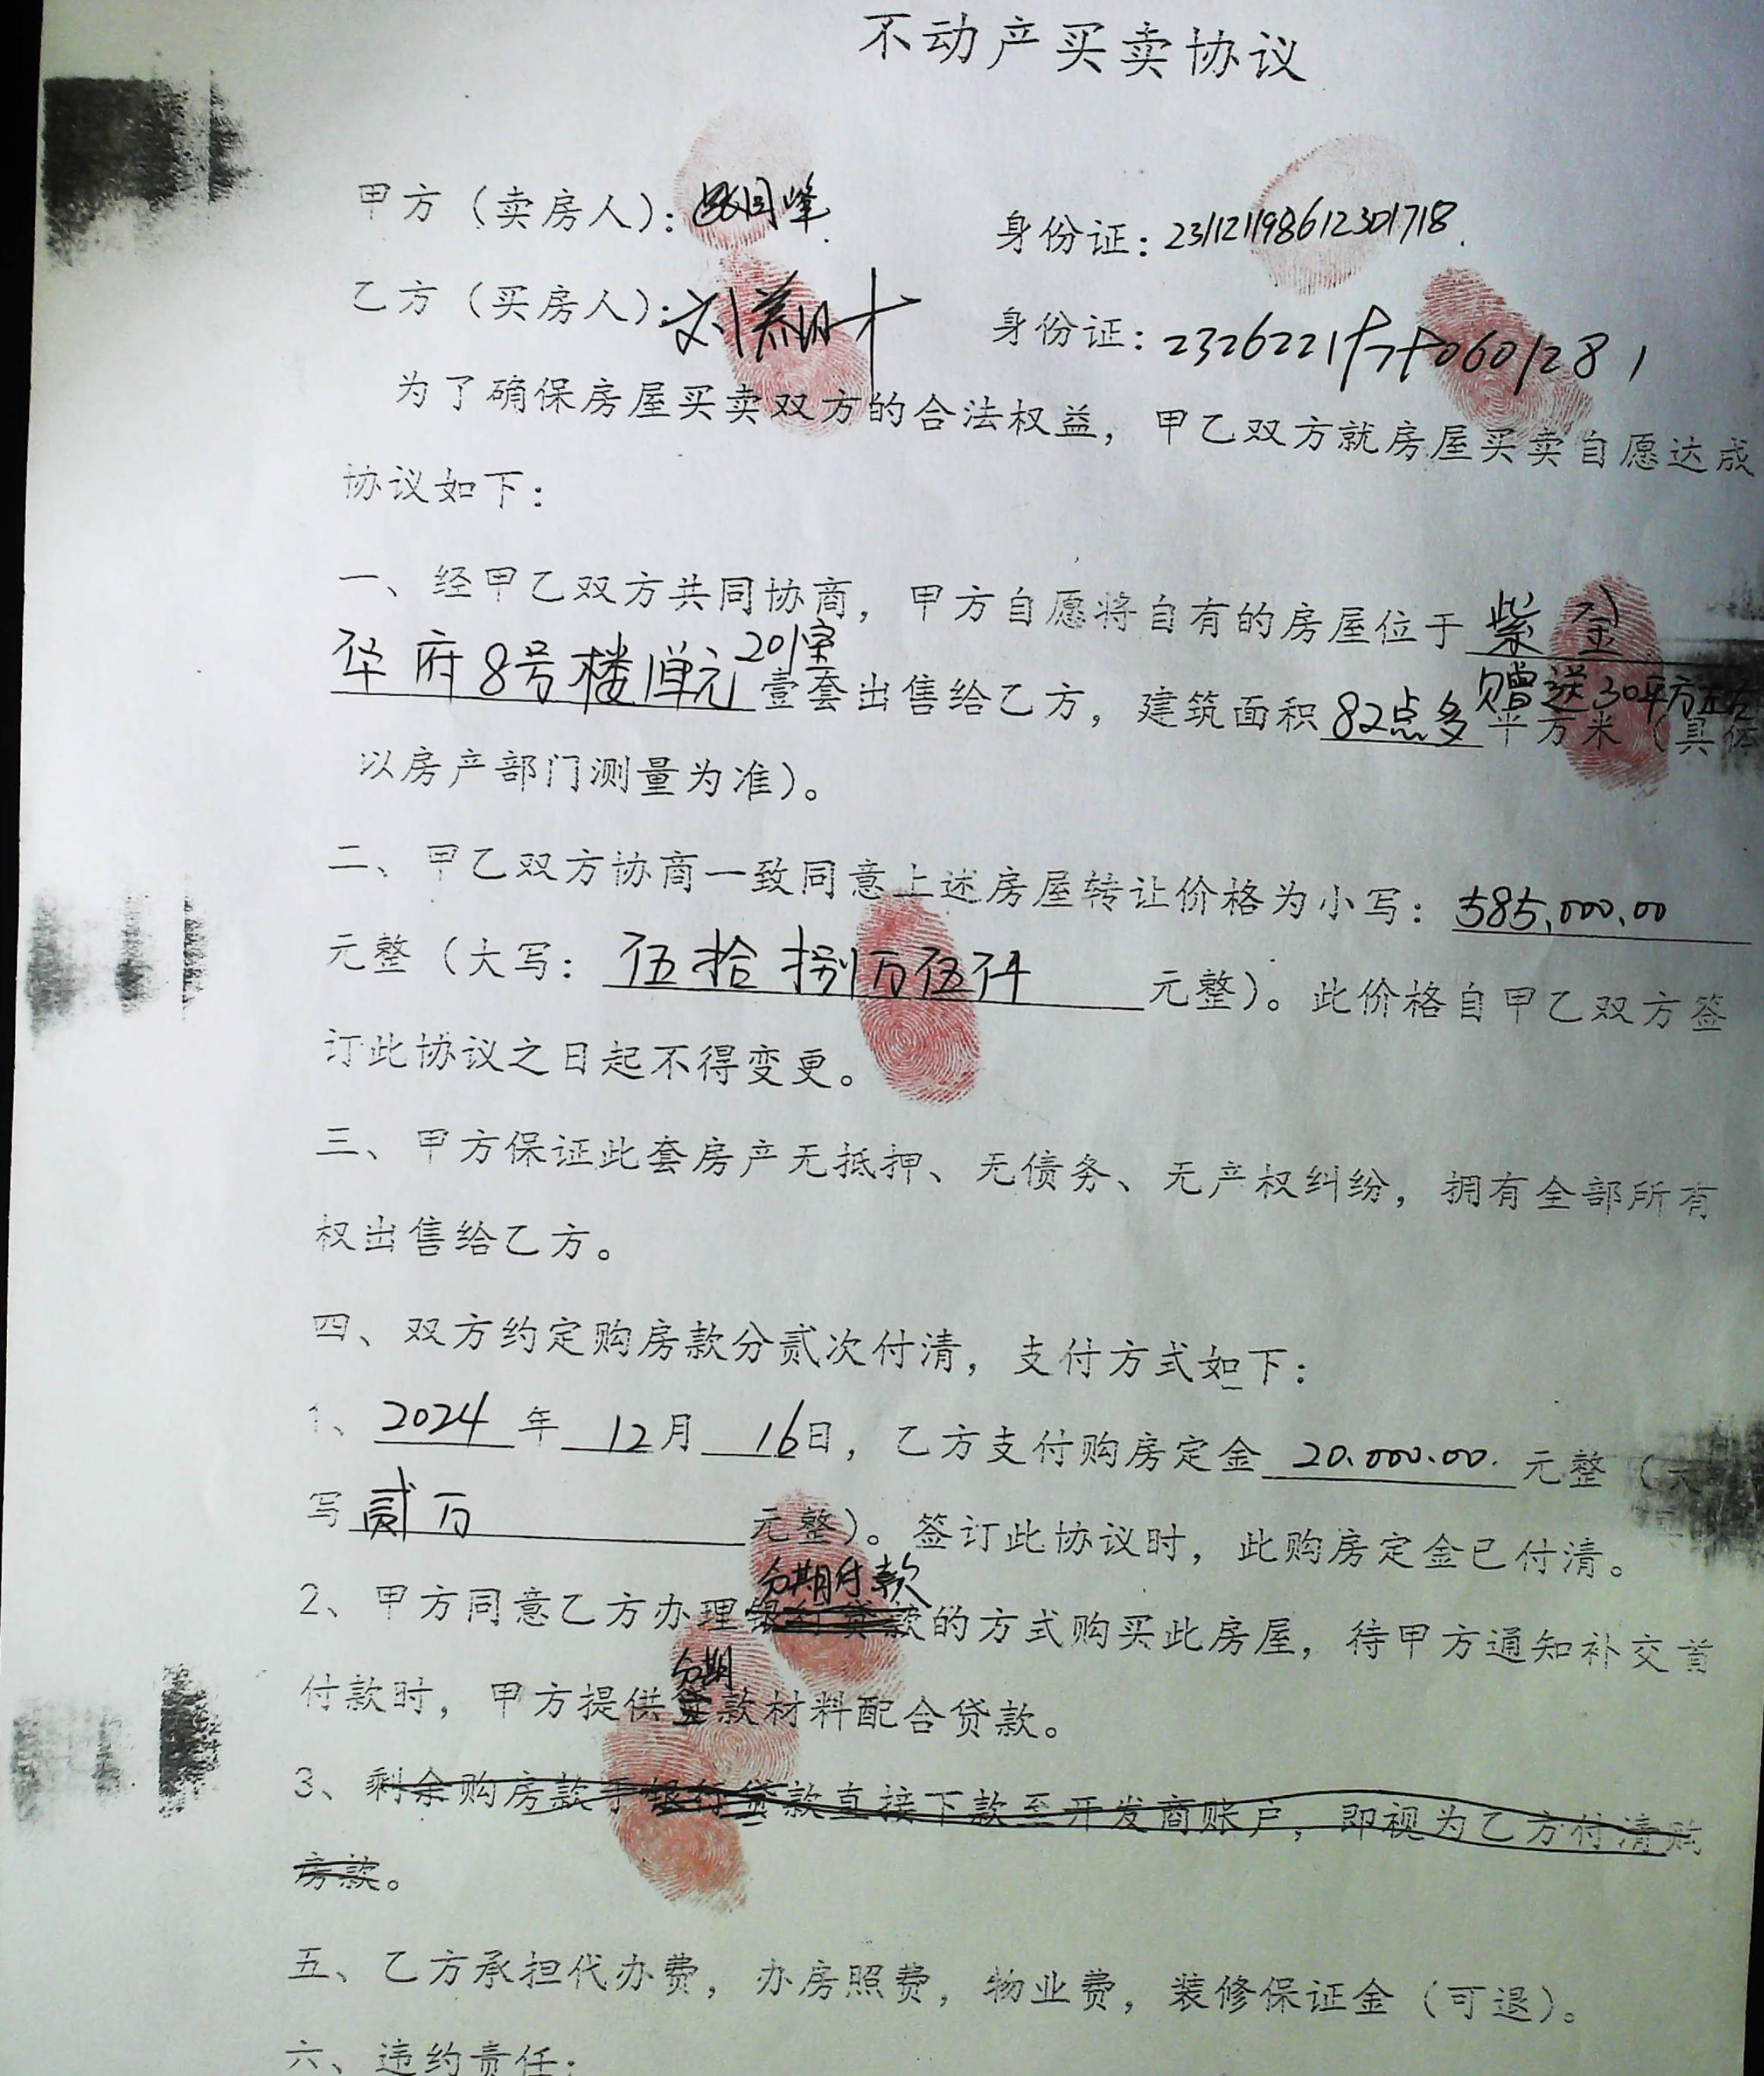 不动产买卖协议
甲方（卖房人）： 身份证：231121198612301718.
乙方（买房人）：刘 身份证：
为了确保房屋买卖双方的合法权益，甲乙双方就房屋买卖自愿达成
协议如下：
一、经甲乙双方共同协商，甲方自愿将自有的房屋位于紫金
华府8号楼1单元201室壹套出售给乙方，建筑面积82点多平方米（具体
赠送30平方左右
以房产部门测量为准）。
二、甲乙双方协商一致同意上述房屋转让价格为小写：585,000.00
元整（大写：伍拾捌万伍仟元整）。此价格自甲乙双方签
订此协议之日起不得变更。
三、甲方保证此套房产无抵押、无债务、无产权纠纷，拥有全部所有
权出售给乙方。
四、双方约定购房款分贰次付清，支付方式如下：
1、2024年12月16日，乙方支付购房定金20.000.00.元整（大
写贰万元整）。签订此协议时，此购房定金已付清。
分期付款
2、甲方同意乙方办理银行贷款的方式购买此房屋，待甲方通知补交首
分期
付款时，甲方提供贷款材料配合贷款。
3、剩余购房款于银行贷款直接下款至开发商账户，即视为乙方付清购
房款。
五、乙方承担代办费，办房照费，物业费，装修保证金（可退）。
六、违约责任：